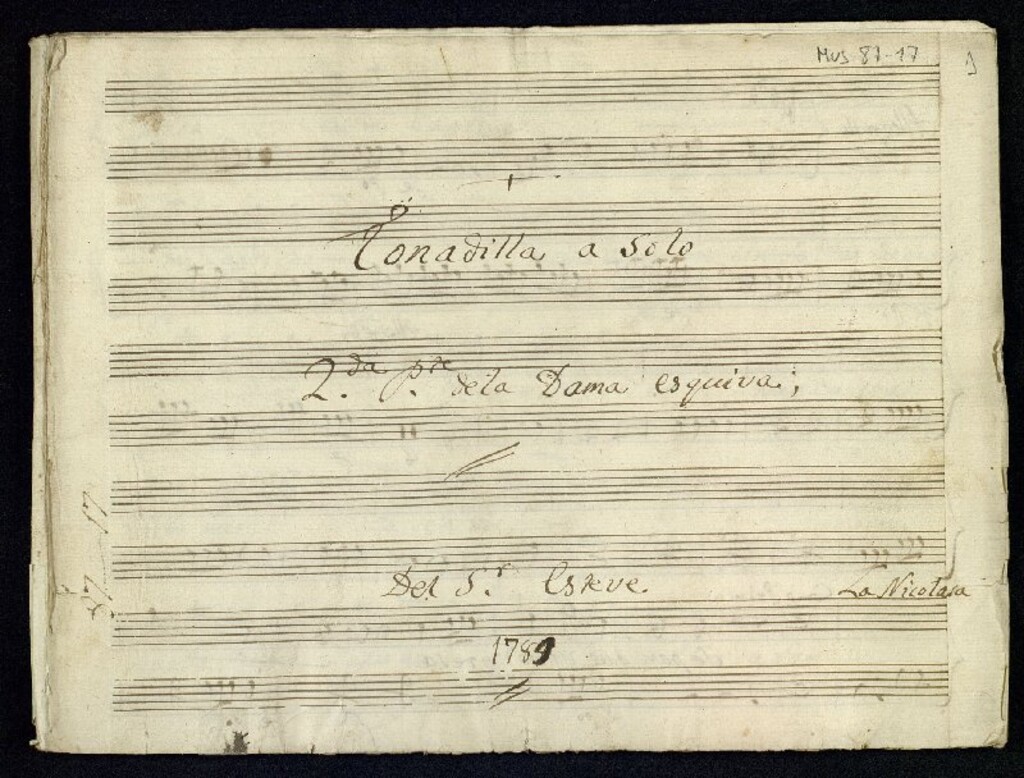 Mus 81-17
1
Tonadilla a Solo
2.da p.te dela Dama esquiva;
Del S.r Esteve
La Nicolasa
1789